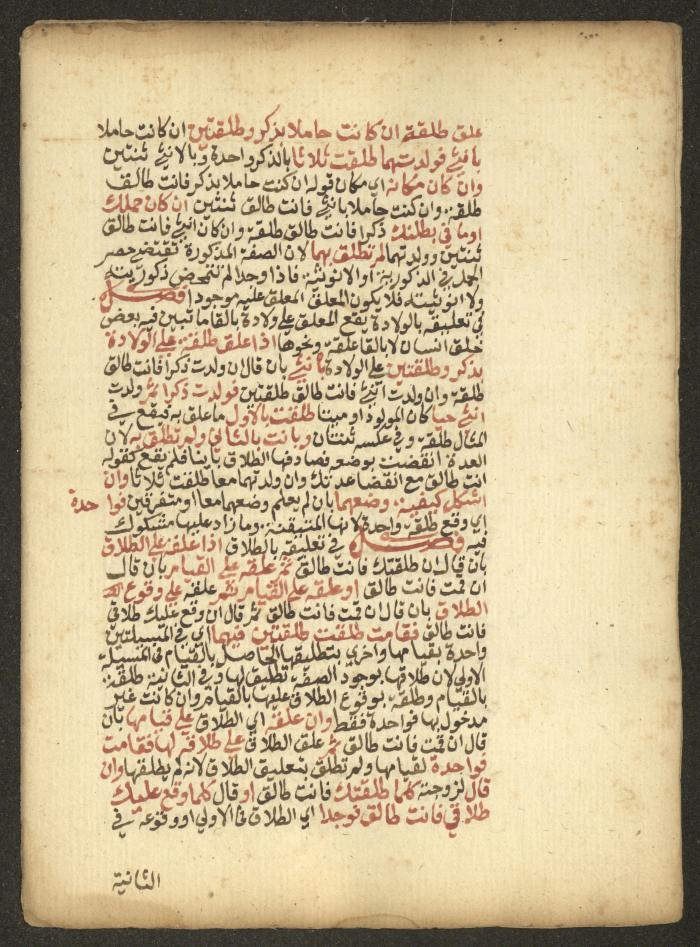 علق طلقة ان كانت حاملا بذكر وطلقتين ان كانت حاملا
بانثى فولدتهما طلقت ثلاثا بالذكر واحدة وبالانثى ثنتين
وان كان مكانه اي مكان قوله ان كنت حاملا بذكر فانت طالق
طلقة وان كنت حاملا بانثى فانت طالق ثنتين ان كان حملك
او ما في بطنك ذكرا فانت طالق طلقة وان كان انثى فانت طالق
ثنتين وولدتهما لم تطلق بهما لان الصفة المذكورة تقتضي حصر
الحمل في الذكورية او الانوثية فاذا وجدا لم تتمحض ذكوريته
ولا انوثيته فلا يكون المعلق المعلق عليه موجودا فصل
في تعليقه بالولادة يقع المعلق على ولادة بالقا ما تبين فيه بعض
خلق انسان لا بالقا علقة ونحوها اذا علق طلقة على الولادة
بذكر وطلقتين على الولادة بانثى بان قال ان ولدت ذكرا فانت طالق
طلقة وان ولدت انثى فانت طالق طلقتين فولدت ذكرا ثم ولدت
انثى حيا كان المولود او ميتا طلقت بالاول ما علق به فيقع في
المثال طلقة وفي عكسه ثنتان وبانت بالثاني ولم تطلق به لان
العدة انقضت بوضعه فصادفها الطلاق باينا فلم يقع كقوله
انت طالق مع انقضا عدتك وان ولدتهما معا طلقت ثلاثا وان
اشكل كيفية وضعهما بان لم يعلم وضعهما معا او متفرقين فواحدة
اي وقع طلقة واحدة لانها المتيقنة وما زاد عليها مشكوك
فيه فصل في تعليقه بالطلاق اذا علقه على الطلاق
بان قال ان طلقتك فانت طالق ثم علقه على القيام بان قال
ان قمت فانت طالق او علقه على القيام ثم علقه على وقوع
الطلاق بان قال ان قمت فانت طالق ثم قال ان وقع عليك طلاقي
فانت طالق فقامت طلقت طلقتين فيهما اي في المسيلتين
واحدة بقيامها واخرى بتطليقها الحاصل بالقيام في المسيلة
الاولى لان طلاقها بوجود الصفة تطليق لها وفي الثانية طلقة
بالقيام وطلقة بوقوع الطلاق عليها بالقيام وان كانت غير
مدخول بها فواحدة فقط وان علقه اي الطلاق على قيامها بان
قال ان قمت فانت طالق ثم علق الطلاق على طلاقه لها فقامت
فواحدة لقيامها ولم تطلق بتعليق الطلاق لانه لم يطلقها وان
قال لزوجته كلما طلقتك فانت طالق او قال كلما وقع عليك
طلاقي فانت طالق فوجدا اي الطلاق في الاولى او وقوعه في
الثانية